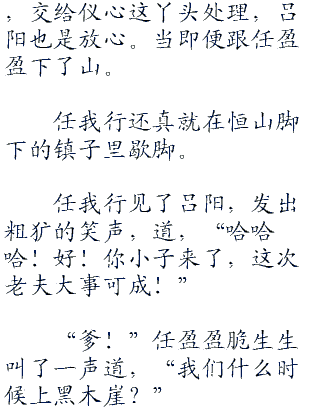 ，交给仪心这丫头处理，吕
阳也是放心。当即便跟任盈
盈下了山。
任我行还真就在恒山脚
下的镇子里歇脚。
任我行见了吕阳，发出
粗犷的笑声，道，“哈哈
哈！好！你小子来了，这次
老夫大事可成！”
“爹！”任盈盈脆生生
叫了一声道，“我们什么时
候上黑木崖？”